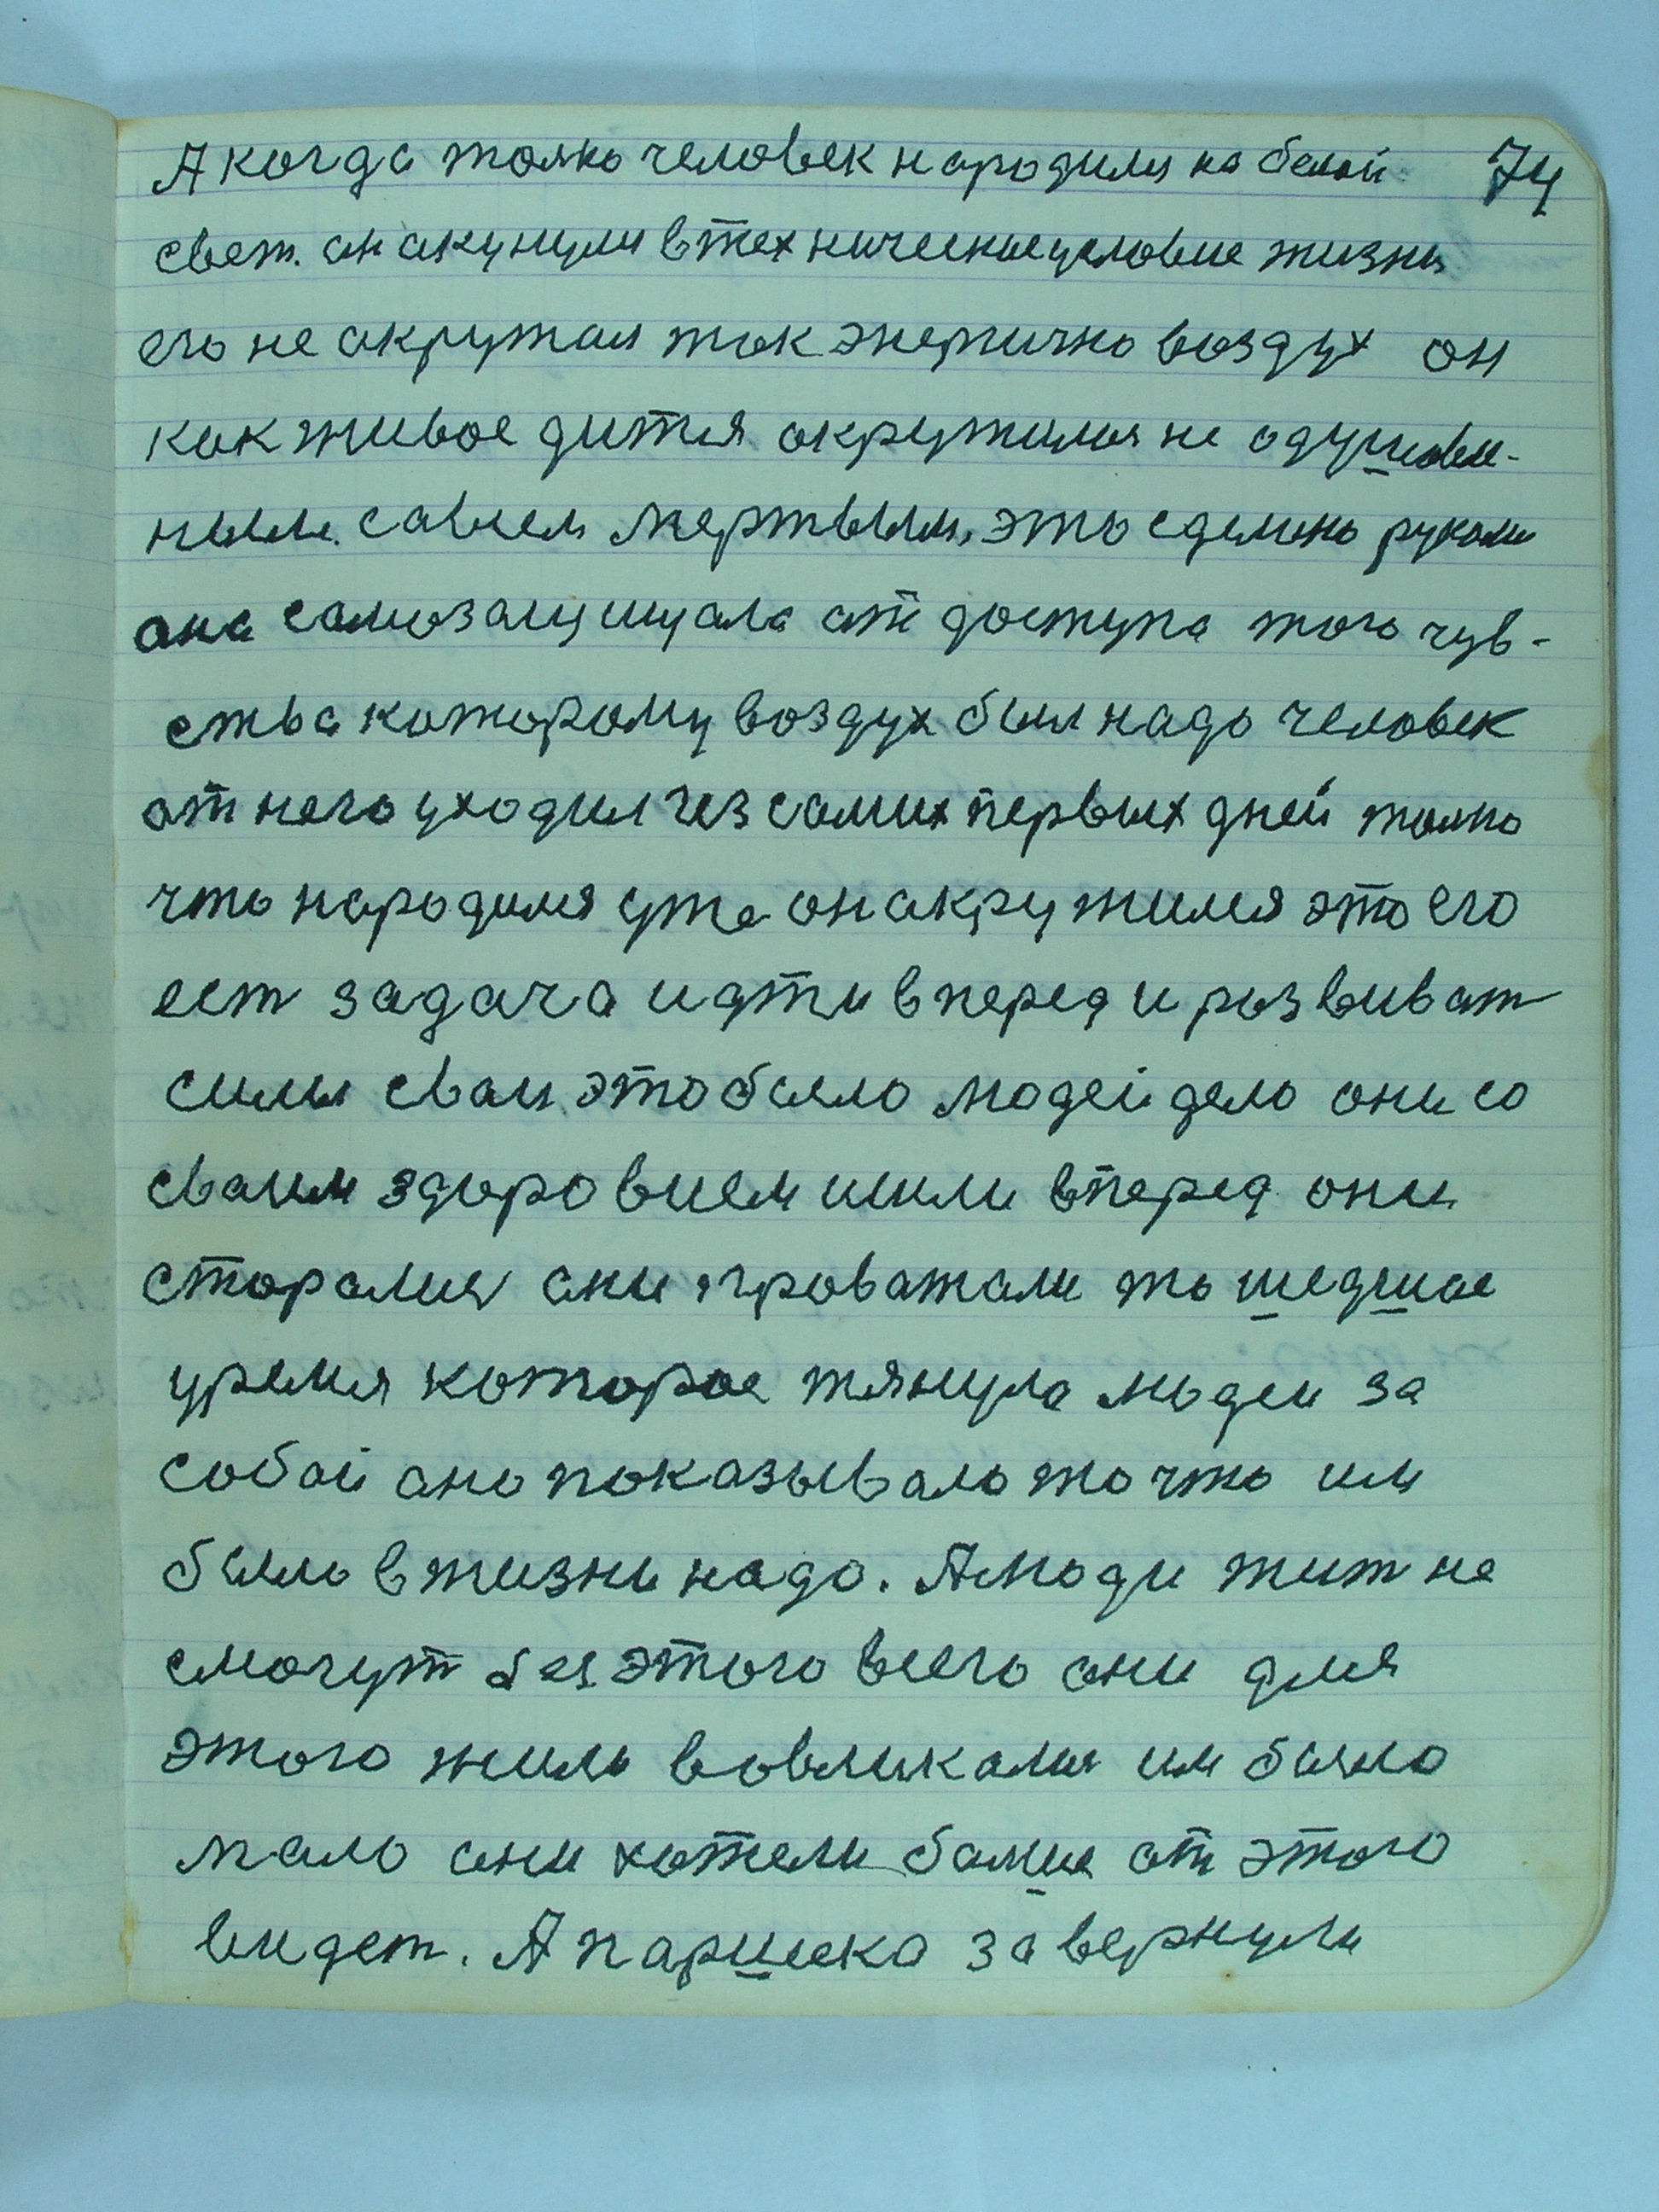 А когда только человек народился на белой 74
свет. он окунулся в технические условие жизни
его не окружал так энергично воздух он
как живое дитя окружился не одушевле-
ным. савсем мертвым, это сделано руками
она самозащищала от доступа того чув-
ства которому воздух был надо человек
от него уходил чез самих первых дней только
что народился уже он акружился это его
ест задача идти вперед и развиват
силы сваи. это было людей дело они со
сваим здоровием шили вперед они
старалися они проважали то шедшае
уремя которое тянула людеи за
собой ано показывало то что им
было в жизни надо. А люди жит не
смогут без этого всего они для
этого жили вовликалися им было
мало они хотели болше от этого
видет. А паршека завернули